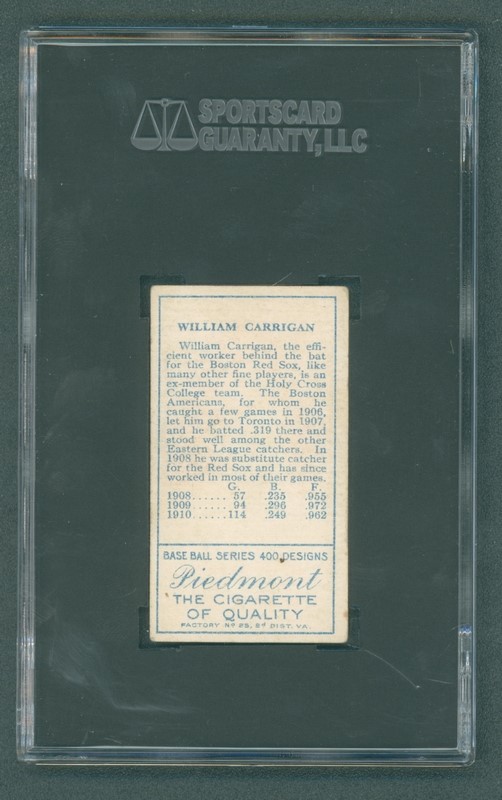 SPORTSCARD
GUARANTY, LLC
WILLIAM CARRIGAN
William Carrigan, the effi-
cient worker behind the bat
for the Boston Red Sox, like
many other fine players, is an
ex-member of the Holy Cross
College team. The Boston
Americans, for whom he
caught a few games in 1906,
let him go to Toronto in 1907,
and he batted .319 there and
stood well among the other
Eastern League catchers. In
1908 he was substitute catcher
for the Red Sox and has since
worked in most of their games.
G. B. F.
1908...... 57 .235 .955
1909...... 94 .296 .972
1910......114 .249 .962
BASE BALL SERIES 400 DESIGNS
Piedmont
THE CIGARETTE
OF QUALITY
FACTORY Nº 25, 2ᵈ DIST. VA.